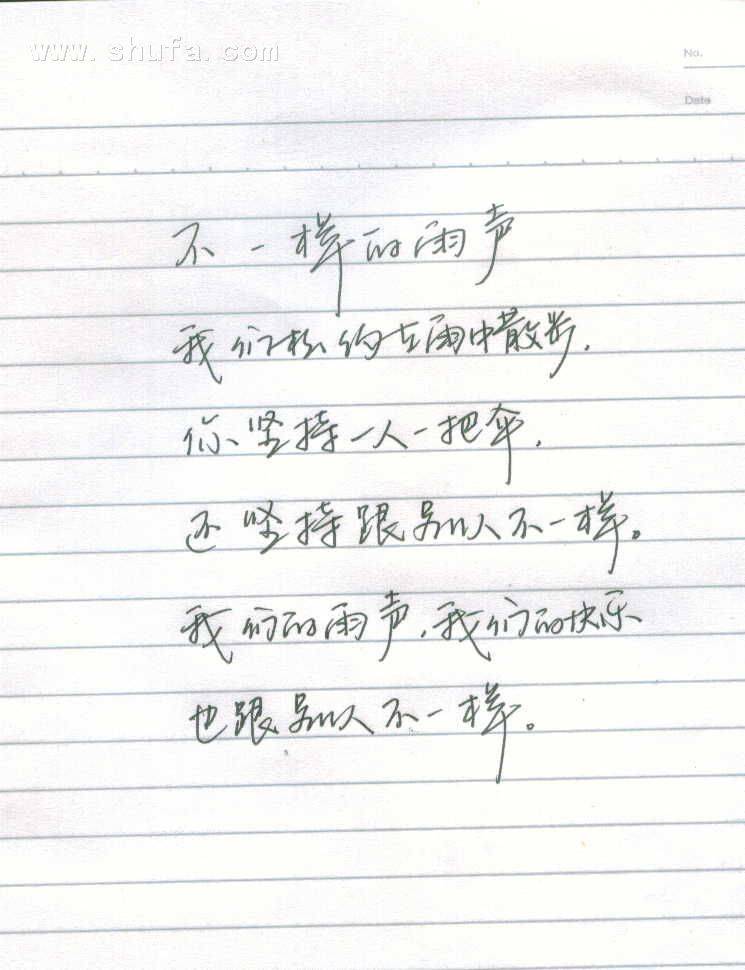 www.shufa.com
No.
Date
不一样的雨声
我们相约在雨中散步，
你坚持一人一把伞，
还坚持跟别人不一样。
我们的雨声，我们的快乐
也跟别人不一样。